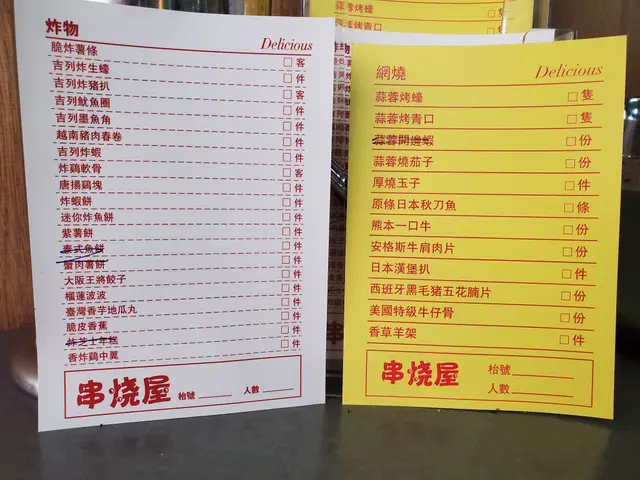 炸物 Delicious
脆炸薯條 □ 客
吉列炸生蠔 □ 件
吉列炸豬扒 □ 客
吉列魷魚圈 □ 件
吉列墨魚角 □ 件
越南豬肉春卷 □ 件
吉列炸蝦 □ 件
炸鷄軟骨 □ 客
唐揚鷄塊 □ 件
炸蝦餅 □ 件
迷你炸魚餅 □ 件
紫薯餅 □ 件
泰式魚餅 □ 件
蟹肉薯餅 □ 件
大阪王將餃子 □ 件
榴蓮波波 □ 件
臺灣香芋地瓜丸 □ 件
脆皮香蕉 □ 件
炸芝士年糕 □ 件
香炸鷄中翼 □ 件
串烧屋 枱號 人數
蒜蓉烤蠔 □ 隻
蒜蓉烤青口 □
網燒 Delicious
蒜蓉烤蠔 □ 隻
蒜蓉烤青口 □ 隻
蒜蓉開邊蝦 □ 份
蒜蓉燒茄子 □ 份
厚燒玉子 □ 件
原條日本秋刀魚 □ 條
熊本一口牛 □ 份
安格斯牛肩肉片 □ 份
日本漢堡扒 □ 件
西班牙黑毛豬五花腩片 □ 份
美國特級牛仔骨 □ 份
香草羊架 □ 件
串烧屋 枱號
人數